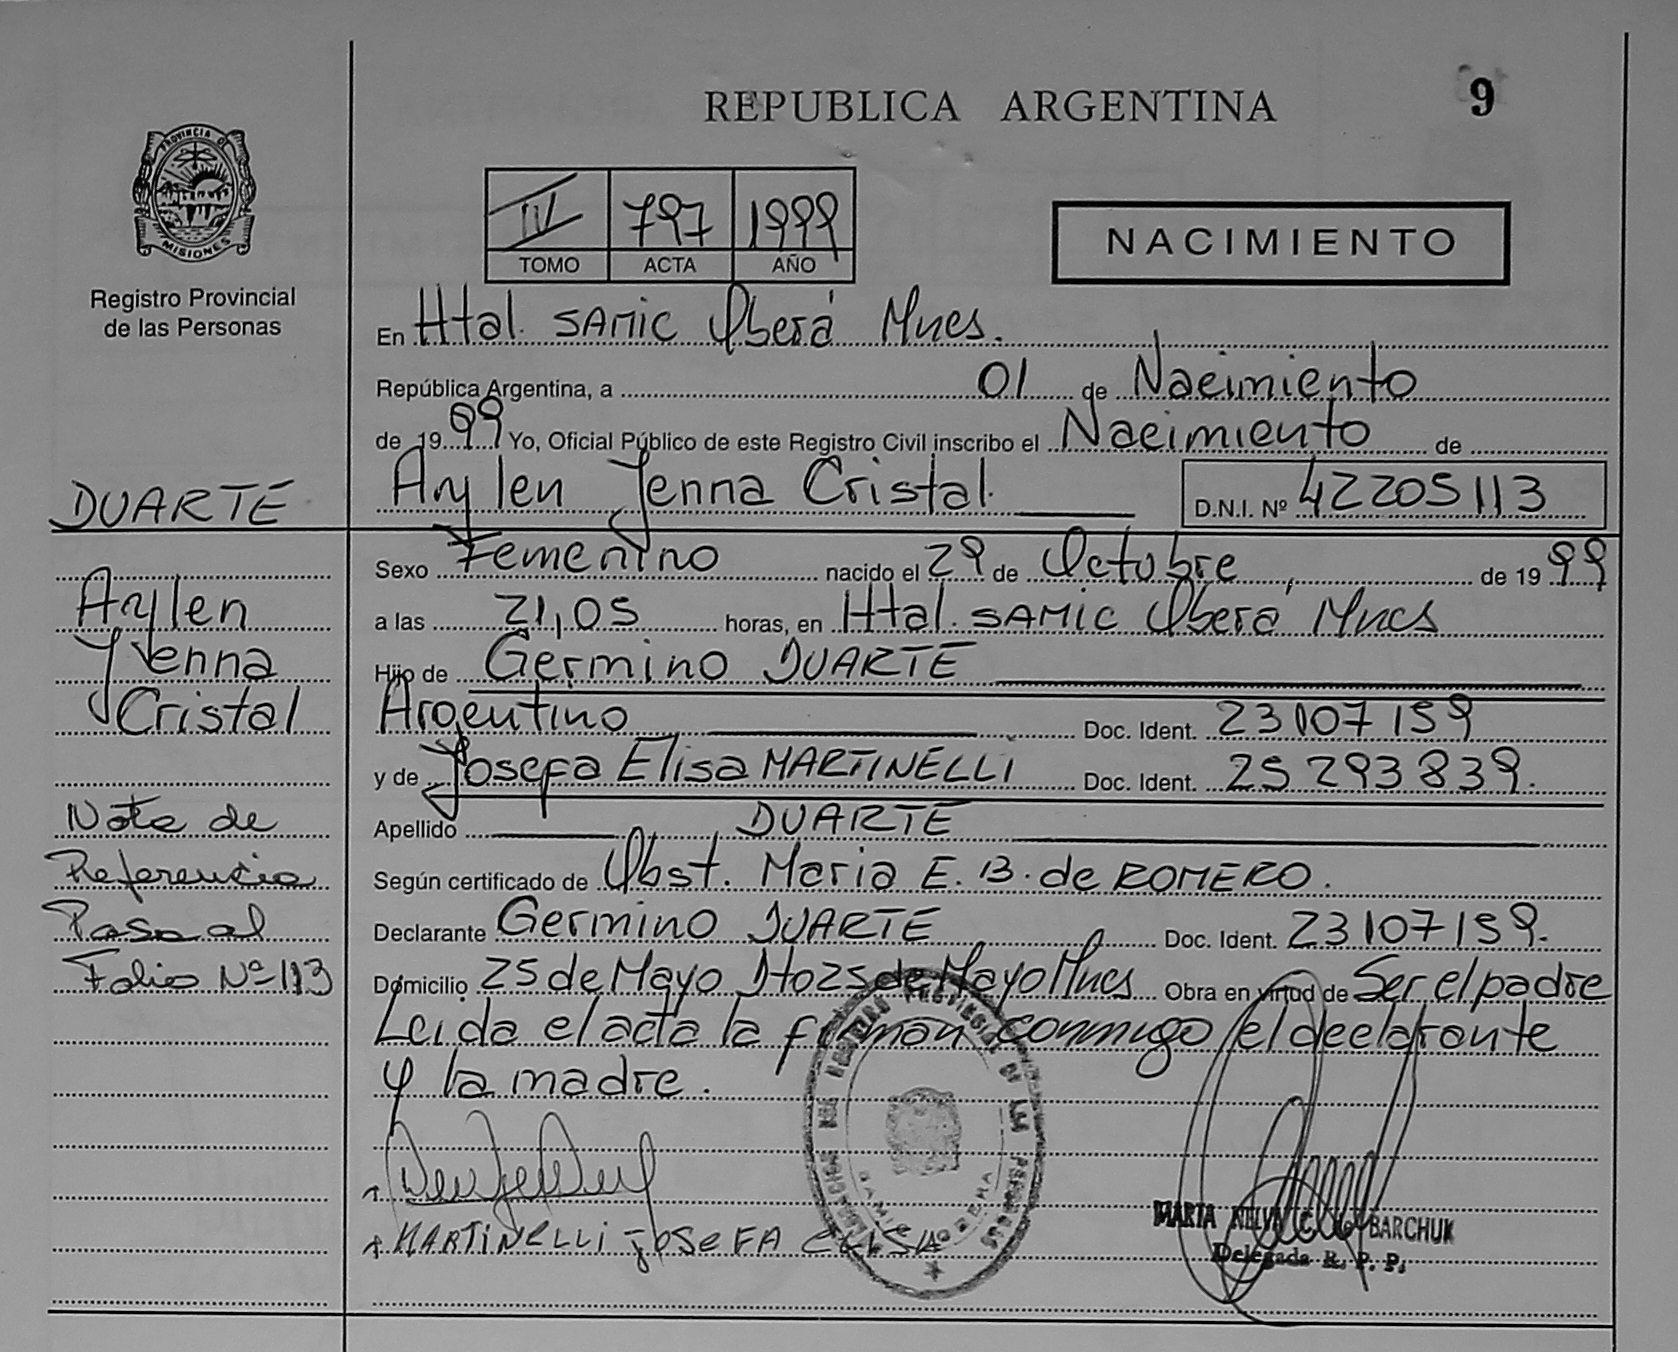 REPUBLICA ARGENTINA
9
PROVINCIA DE
MISIONES
Registro Provincial
de las Personas
IV 797 1999
TOMO ACTA AÑO
NACIMIENTO
En Htal. SAMIC Oberá Mnes.
República Argentina, a 01 de Nacimiento
de 19 99 Yo, Oficial Público de este Registro Civil inscribo el Nacimiento de
DUARTE
Aylen Jenna Cristal
D.N.I. Nº 42205113
Sexo Femenino nacido el 29 de Octubre de 19 99
Aylen
a las 21,05 horas, en Htal. SAMIC Oberá Mnes
Jenna
Hijo de Germino DUARTE
Cristal
Argentino Doc. Ident. 23107159
y de Josefa Elisa MARTINELLI Doc. Ident. 25293839.
Nota de
Apellido DUARTE
Referencia
Según certificado de Obst. Maria E. B. de ROMERO.
Pasa al
Declarante Germino DUARTE Doc. Ident. 23107159.
Folio Nº 113
Domicilio 25 de Mayo Dto 25 de Mayo Mnes Obra en virtud de Ser el padre
Leida el acta la firman conmigo el declarante
y la madre.
MARTINELLI JOSEFA ELISA
MARTA NELVI BARCHUK
Delegada R. P. P.